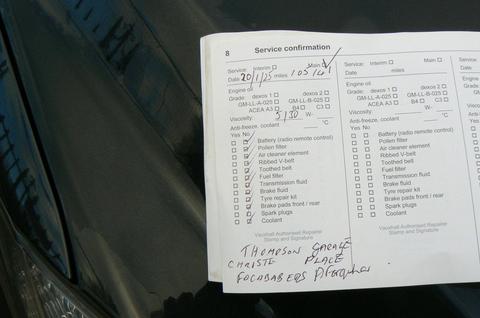 8 Service confirmation
Service: Interim ☐ Main ☑
Date 20/1/25 miles 103141
Engine oil
Grade: dexos 1 ☐ dexos 2 ☐
GM-LL-A-025 ☐ GM-LL-B-025 ☐
ACEA A3 ☐ B4 ☐ C3 ☐
Viscosity: 5/30 W-
Anti-freeze, coolant °C
Yes No
Battery (radio remote control)
Pollen filter
Air cleaner element
Ribbed V-belt
Toothed belt
Fuel filter
Transmission fluid
Brake fluid
Tyre repair kit
Brake pads front / rear
Spark plugs
Coolant
Vauxhall Authorised Repairer
Stamp and Signature
THOMPSON GARAGE
CHRISTE PLACE
FOCHABERS
Service: Interim ☐ Main ☐
Date miles
Engine oil
Grade: dexos 1 ☐ dexos 2 ☐
GM-LL-A-025 ☐ GM-LL-B-025 ☐
ACEA A3 ☐ B4 ☐ C3 ☐
Viscosity: W-
Anti-freeze, coolant °C
Yes No
Battery (radio remote control)
Pollen filter
Air cleaner element
Ribbed V-belt
Toothed belt
Fuel filter
Transmission fluid
Brake fluid
Tyre repair kit
Brake pads front / rear
Spark plugs
Coolant
Vauxhall Authorised Repairer
Stamp and Signature